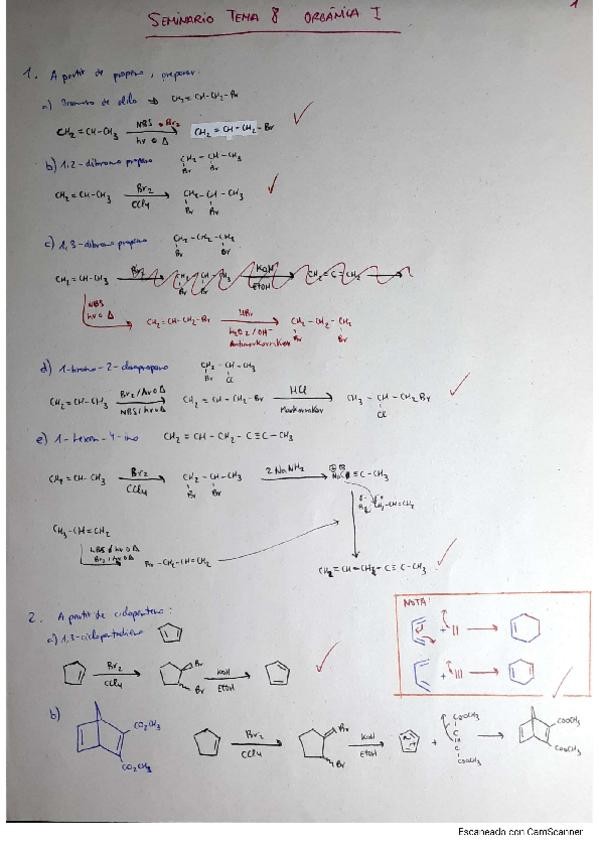 SEMINARIO TEMA 8 ORGÁNICA I
1
1. A partir de propeno, preparar:
a) Bromuro de alilo ⇒ CH2=CH-CH2-Br
CH2=CH-CH3 NBS o Br2 hν o Δ CH2=CH-CH2-Br
b) 1,2-dibromopropano CH2-CH-CH3
Br Br
CH2=CH-CH3 Br2 CCl4 CH2-CH-CH3
Br Br
c) 1,3-dibromopropano CH2-CH2-CH2
Br Br
CH2=CH-CH3 Br2 CH2-CH-CH3 KOH EtOH CH2=C=CH2
Br Br
NBS hν o Δ
CH2=CH-CH2-Br HBr H2O2/OH- Antimarkovnikov CH2-CH2-CH2
Br Br
d) 1-bromo-2-cloropropano CH2-CH-CH3
Br Cl
CH2=CH-CH3 Br2/hν o Δ NBS/hν o Δ CH2=CH-CH2-Br HCl Markovnikov CH3-CH-CH2Br
Cl
e) 1-hexen-4-ino CH2=CH-CH2-C≡C-CH3
CH2=CH-CH3 Br2 CCl4 CH2-CH-CH3 2 NaNH2 ≡C-CH3
Br Br
CH3-CH=CH2
NBS/hν o Δ
Br2/hν o Δ
Br-CH2-CH=CH2
CH2=CH-CH2-C≡C-CH3
2. A partir de ciclopenteno:
a) 1,3-ciclopentadieno
Br2 CCl4 Br Br KOH EtOH
NOTA:
+
+
b) CO2CH3
CO2CH3
Br2 CCl4 Br Br KOH EtOH + COOCH3 C C COOCH3 COOCH3 COOCH3
Escaneado con CamScanner